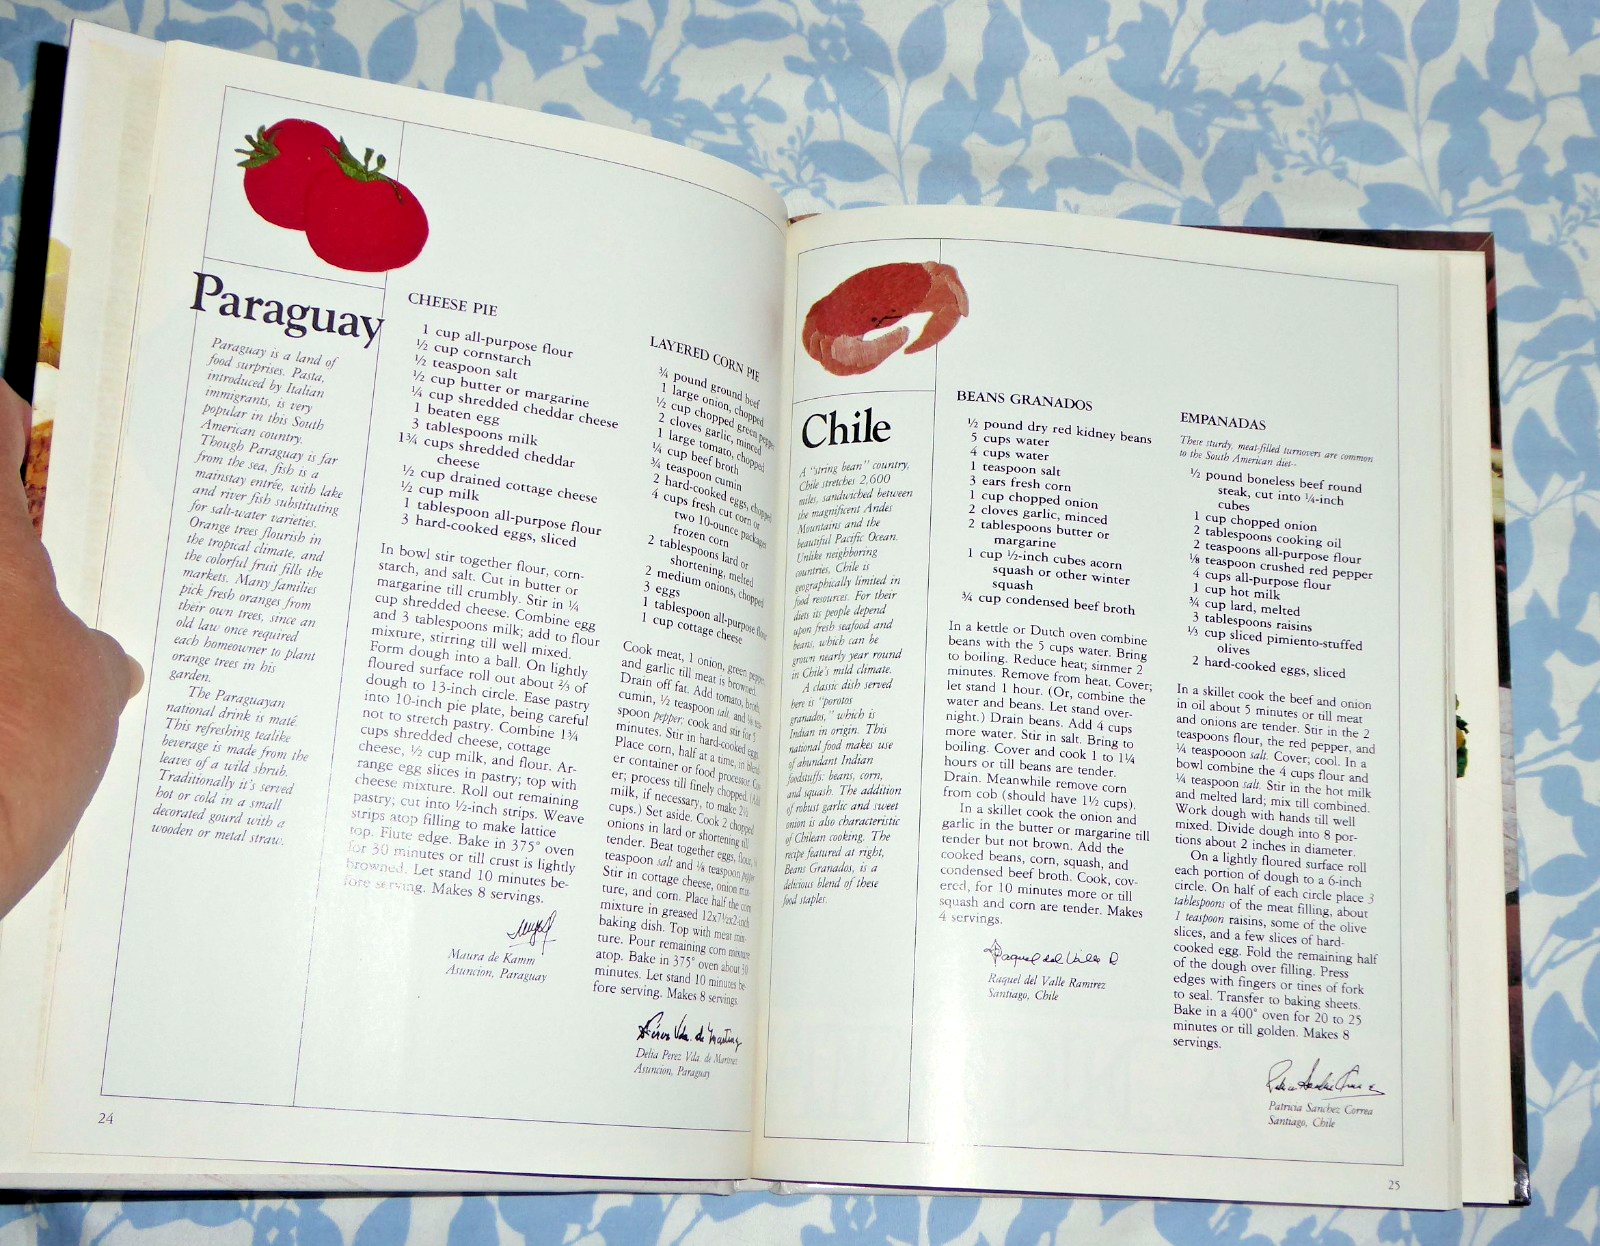 Paraguay
Paraguay is a land of
food surprises. Pasta,
introduced by Italian
immigrants, is very
popular in this South
American country.
Though Paraguay is far
from the sea, fish is a
mainstay entrée, with lake
and river fish substituting
for salt-water varieties.
Orange trees flourish in
the tropical climate, and
the colorful fruit fills the
markets. Many families
pick fresh oranges from
their own trees, since an
old law once required
each homeowner to plant
orange trees in his
garden.
The Paraguayan
national drink is maté.
This refreshing tealike
beverage is made from the
leaves of a wild shrub.
Traditionally it's served
hot or cold in a small
decorated gourd with a
wooden or metal straw.
CHEESE PIE
1 cup all-purpose flour
½ cup cornstarch
½ teaspoon salt
½ cup butter or margarine
¼ cup shredded cheddar cheese
1 beaten egg
3 tablespoons milk
1¾ cups shredded cheddar
cheese
½ cup drained cottage cheese
½ cup milk
1 tablespoon all-purpose flour
3 hard-cooked eggs, sliced
In bowl stir together flour, corn-
starch, and salt. Cut in butter or
margarine till crumbly. Stir in ¼
cup shredded cheese. Combine egg
and 3 tablespoons milk; add to flour
mixture, stirring till well mixed.
Form dough into a ball. On lightly
floured surface roll out about ⅔ of
dough to 13-inch circle. Ease pastry
into 10-inch pie plate, being careful
not to stretch pastry. Combine 1¾
cups shredded cheese, cottage
cheese, ½ cup milk, and flour. Ar-
range egg slices in pastry; top with
cheese mixture. Roll out remaining
pastry; cut into ½-inch strips. Weave
strips atop filling to make lattice
top. Flute edge. Bake in 375° oven
for 30 minutes or till crust is lightly
browned. Let stand 10 minutes be-
fore serving. Makes 8 servings.
Maura de Kamm
Asuncion, Paraguay
LAYERED CORN PIE
¾ pound ground beef
1 large onion, chopped
½ cup chopped green pepper
2 cloves garlic, minced
1 large tomato, chopped
¼ cup beef broth
¾ teaspoon cumin
2 hard-cooked eggs, chopped
4 cups fresh cut corn or
two 10-ounce packages
frozen corn
2 tablespoons lard or
shortening, melted
2 medium onions, chopped
3 eggs
1 tablespoon all-purpose flour
1 cup cottage cheese
Cook meat, 1 onion, green pepper,
and garlic till meat is browned.
Drain off fat. Add tomato, broth,
cumin, ½ teaspoon salt, and ⅛ tea-
spoon pepper; cook and stir for 5
minutes. Stir in hard-cooked eggs.
Place corn, half at a time, in blend-
er container or food processor. Cov-
er; process till finely chopped. (Add
milk, if necessary, to make 2½
cups.) Set aside. Cook 2 chopped
onions in lard or shortening till
tender. Beat together eggs, flour, ½
teaspoon salt and ⅛ teaspoon pepper.
Stir in cottage cheese, onion mix-
ture, and corn. Place half the corn
mixture in greased 12x7½x2-inch
baking dish. Top with meat mix-
ture. Pour remaining corn mixture
atop. Bake in 375° oven about 30
minutes. Let stand 10 minutes be-
fore serving. Makes 8 servings.
Delia Perez Vda. de Martinez
Asuncion, Paraguay
24
Chile
A "string bean" country,
Chile stretches 2,600
miles, sandwiched between
the magnificent Andes
Mountains and the
beautiful Pacific Ocean.
Unlike neighboring
countries, Chile is
geographically limited in
food resources. For their
diets its people depend
upon fresh seafood and
beans, which can be
grown nearly year round
in Chile's mild climate.
A classic dish served
here is "porotos
granados," which is
Indian in origin. This
national food makes use
of abundant Indian
foodstuffs: beans, corn,
and squash. The addition
of robust garlic and sweet
onion is also characteristic
of Chilean cooking. The
recipe featured at right,
Beans Granados, is a
delicious blend of these
food staples.
BEANS GRANADOS
½ pound dry red kidney beans
5 cups water
4 cups water
1 teaspoon salt
3 ears fresh corn
1 cup chopped onion
2 cloves garlic, minced
2 tablespoons butter or
margarine
1 cup ½-inch cubes acorn
squash or other winter
squash
¾ cup condensed beef broth
In a kettle or Dutch oven combine
beans with the 5 cups water. Bring
to boiling. Reduce heat; simmer 2
minutes. Remove from heat. Cover;
let stand 1 hour. (Or, combine the
water and beans. Let stand over-
night.) Drain beans. Add 4 cups
more water. Stir in salt. Bring to
boiling. Cover and cook 1 to 1¼
hours or till beans are tender.
Drain. Meanwhile remove corn
from cob (should have 1½ cups).
In a skillet cook the onion and
garlic in the butter or margarine till
tender but not brown. Add the
cooked beans, corn, squash, and
condensed beef broth. Cook, cov-
ered, for 10 minutes more or till
squash and corn are tender. Makes
4 servings.
Raquel del Valle R
Raquel del Valle Ramirez
Santiago, Chile
EMPANADAS
These sturdy, meat-filled turnovers are common
to the South American diet--
½ pound boneless beef round
steak, cut into ¼-inch
cubes
1 cup chopped onion
2 tablespoons cooking oil
2 teaspoons all-purpose flour
⅛ teaspoon crushed red pepper
4 cups all-purpose flour
1 cup hot milk
¾ cup lard, melted
3 tablespoons raisins
⅓ cup sliced pimiento-stuffed
olives
2 hard-cooked eggs, sliced
In a skillet cook the beef and onion
in oil about 5 minutes or till meat
and onions are tender. Stir in the 2
teaspoons flour, the red pepper, and
¼ teaspooon salt. Cover; cool. In a
bowl combine the 4 cups flour and
¼ teaspoon salt. Stir in the hot milk
and melted lard; mix till combined.
Work dough with hands till well
mixed. Divide dough into 8 por-
tions about 2 inches in diameter.
On a lightly floured surface roll
each portion of dough to a 6-inch
circle. On half of each circle place 3
tablespoons of the meat filling, about
1 teaspoon raisins, some of the olive
slices, and a few slices of hard-
cooked egg. Fold the remaining half
of the dough over filling. Press
edges with fingers or tines of fork
to seal. Transfer to baking sheets.
Bake in a 400° oven for 20 to 25
minutes or till golden. Makes 8
servings.
Patricia Sanchez Correa
Santiago, Chile
25